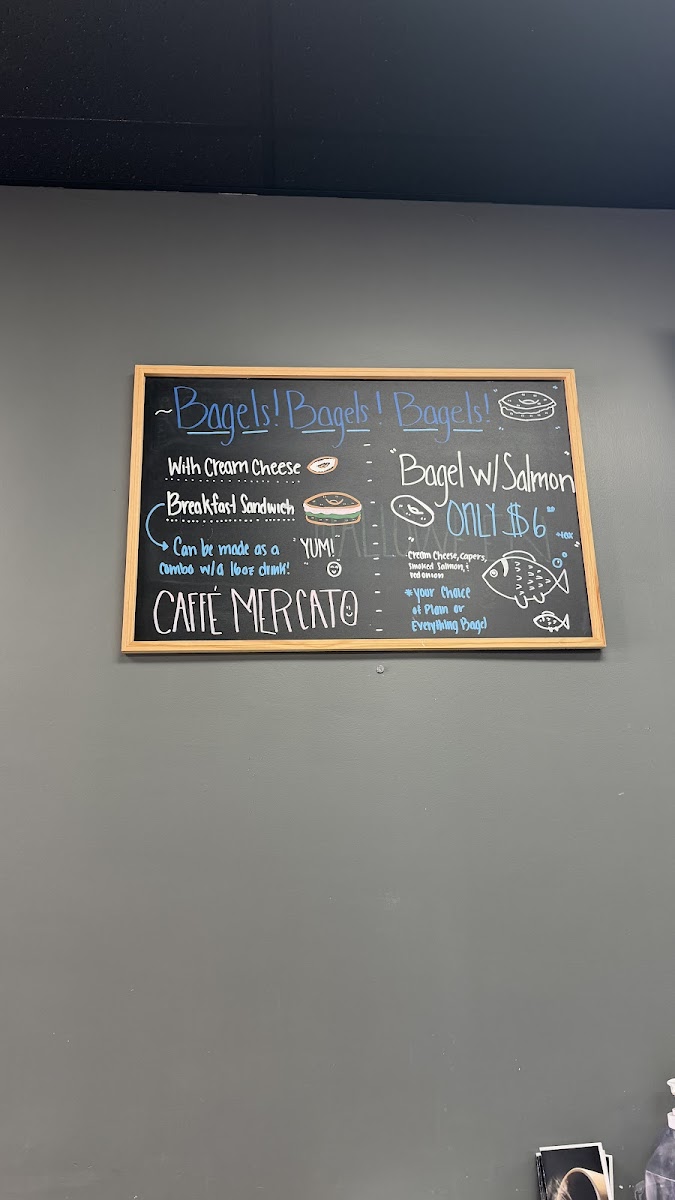 ~Bagels! Bagels! Bagels!
With Cream Cheese
Breakfast Sandwich
Can be made as a
combo w/a 16oz drink!
"YUM!"
CAFFÉ MERCATO
"Bagel w/Salmon"
ONLY $6
+tax
Cream Cheese, capers,
smoked Salmon, &
red onion
*your Choice
of Plain or
Everything Bagel